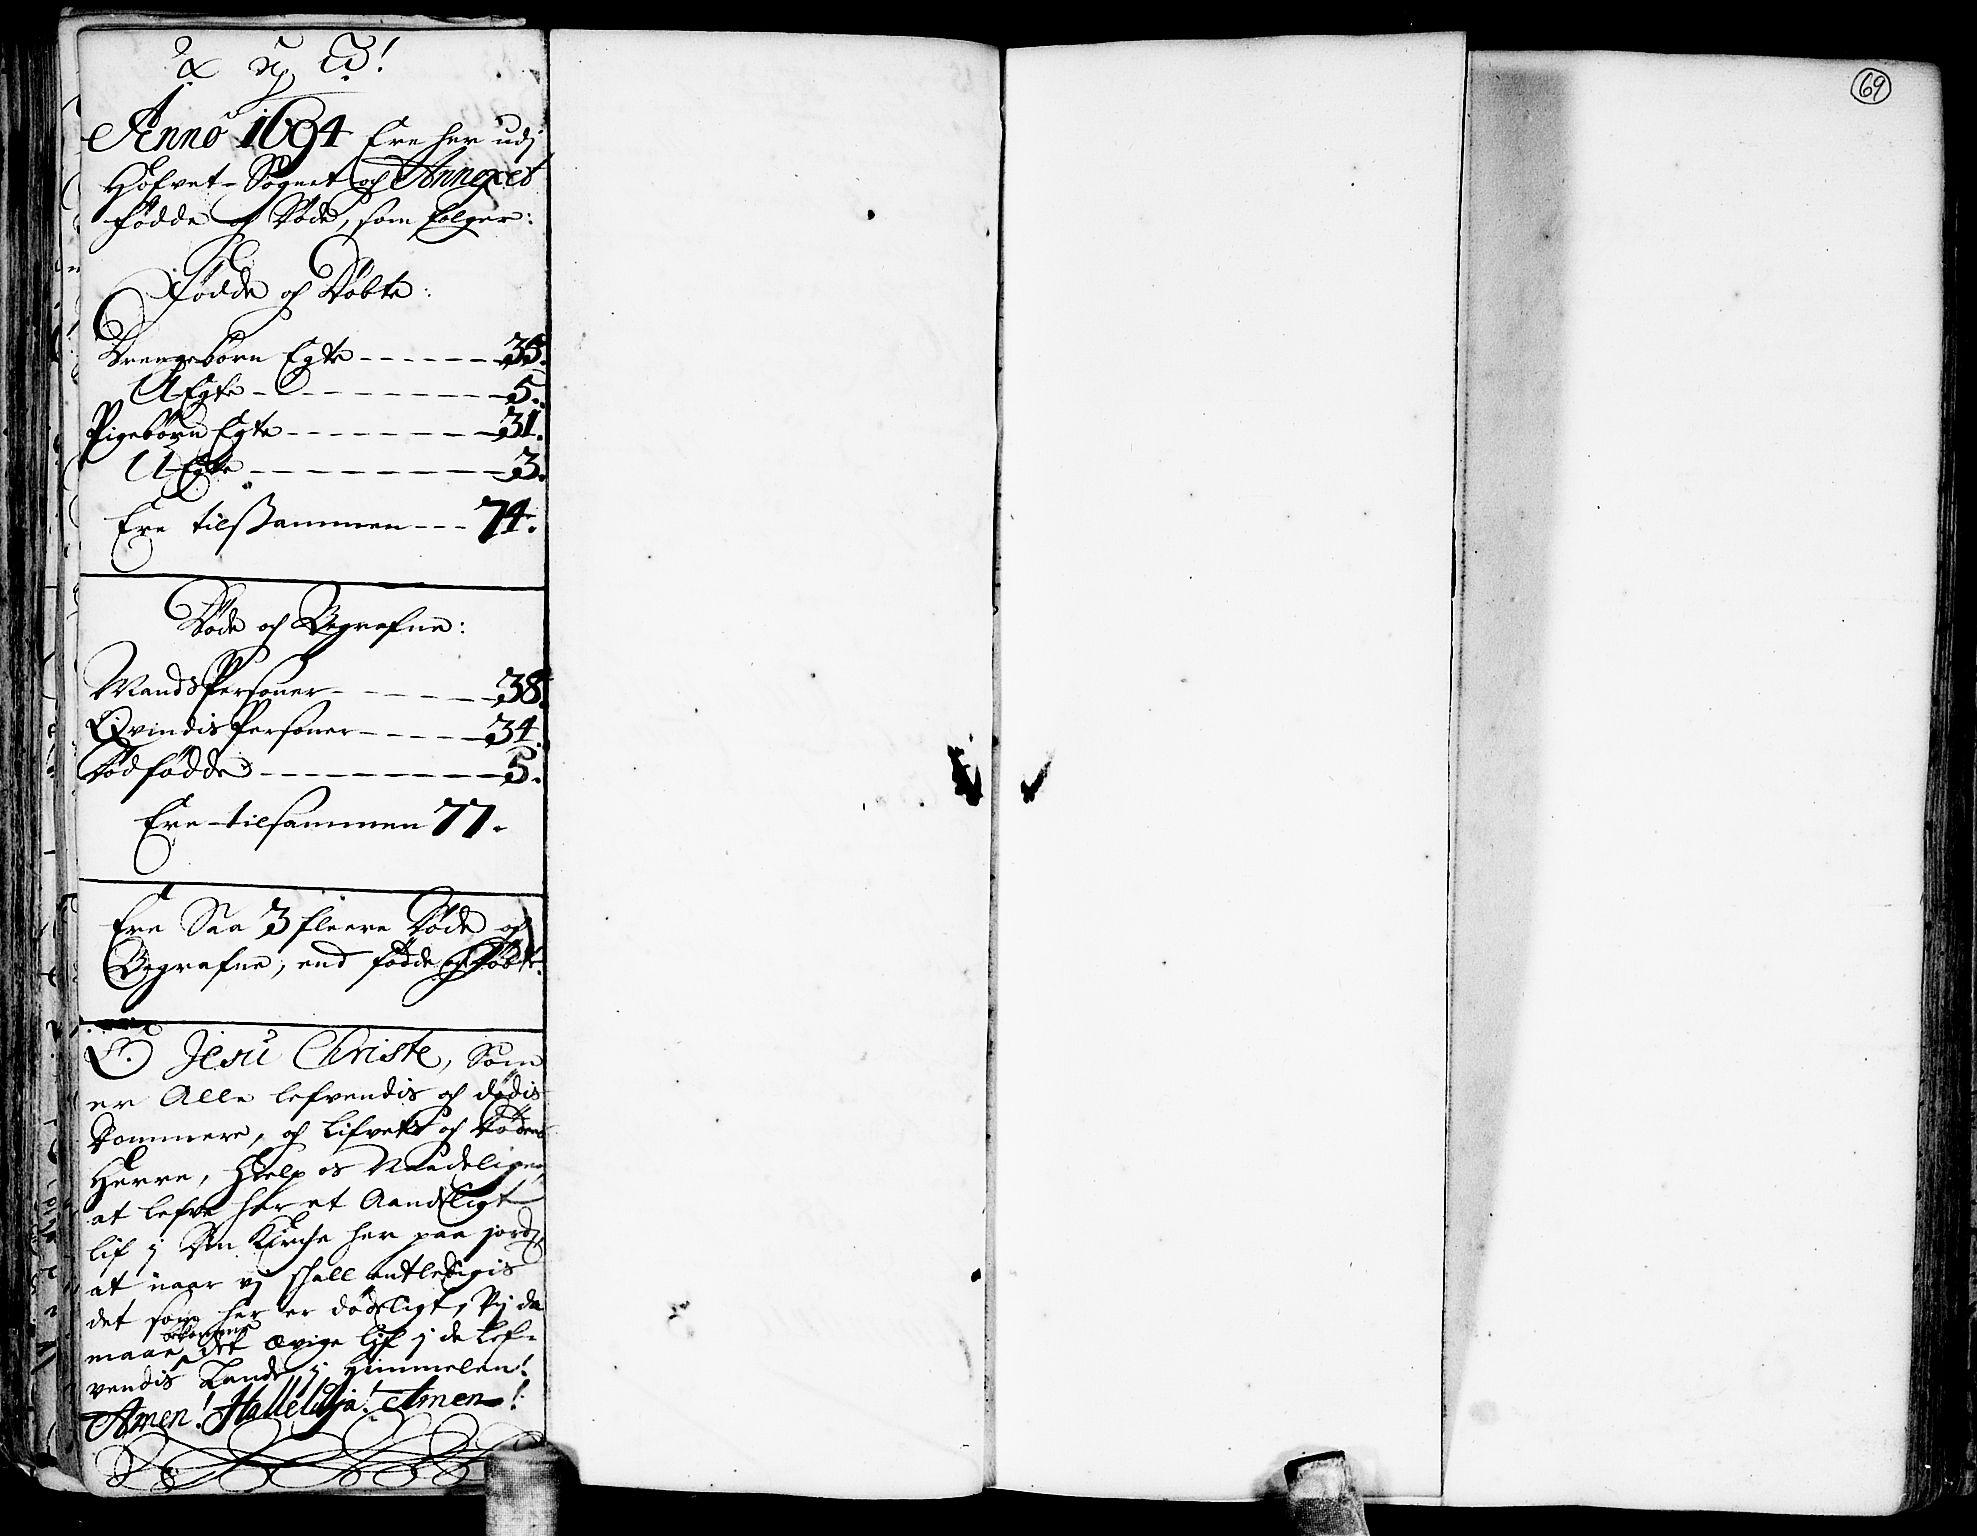 Anno 1694 Ere her udj
Hofvet-Sognet och Annexet
fødde och Døde, som følger:
Fødde och Døbte:
Drengebørn Egte 35.
UEgte 5.
Pigebørn Egte 31.
UEgte 3.
Ere tilsammen 74.
Døde och Begrafne:
MandsPersoner 38.
QvindisPersoner 34.
Dødfødde 5.
Ere tilsammen 77.
Ere Saa 3 fleere Døde och
Begrafne, end fødde och Døbte.
O Jesu Christe, Som
er Alle lefvendis och dødis
Dommere, och Lifvets och Dødens
Herre, Hielp os Naadeligen,
at lefve her et Aandeligt
lif j Din Kirche her paa jord,
at naar vj skall entledigis
det som her er dødeligt, Vj da
maae bekomme det ævige lif j de Lef-
vendis Lande j Himmelen!
Amen! Halleluja! Amen!
69